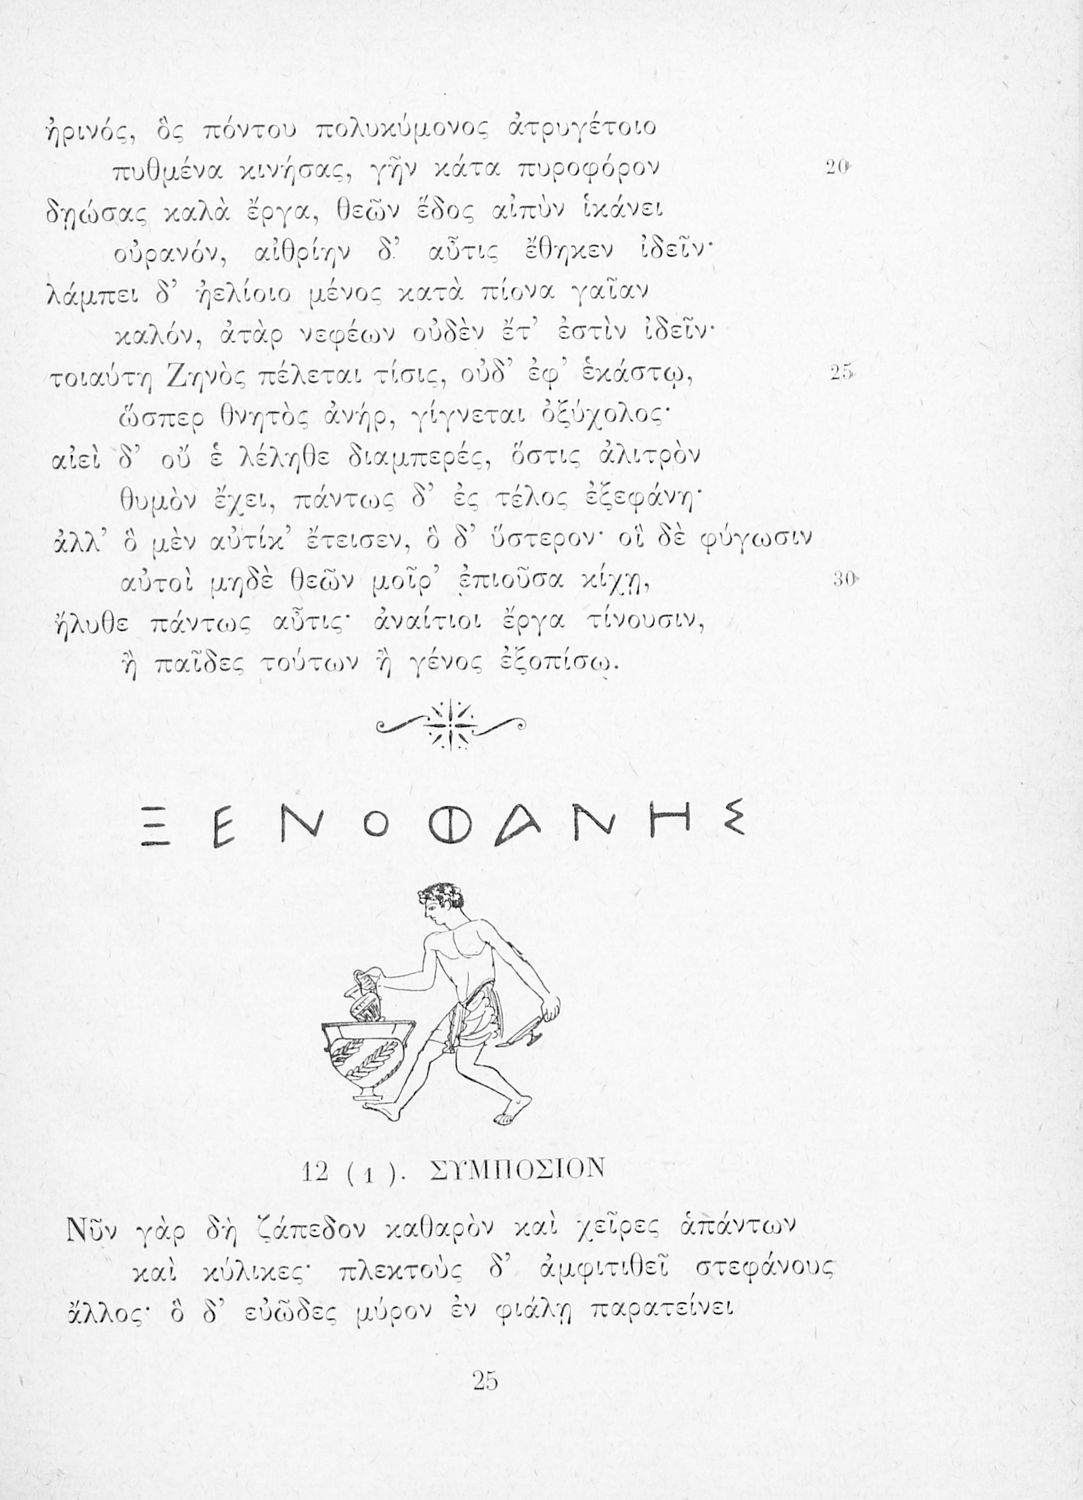 ἠρινός, ὃς πόντου πολυκύμονος ἀτρυγέτοιο
πυθμένα κινήσας, γῆν κάτα πυροφόρον 20
δῃώσας καλὰ ἔργα, θεῶν ἕδος αἰπὺν ἱκάνει
οὐρανόν, αἰθρίην δ’ αὖτις ἔθηκεν ἰδεῖν·
λάμπει δ’ ἠελίοιο μένος κατὰ πίονα γαῖαν
καλόν, ἀτὰρ νεφέων οὐδὲν ἔτ’ ἐστὶν ἰδεῖν·
τοιαύτη Ζηνὸς πέλεται τίσις, οὐδ’ ἐφ’ ἑκάστῳ, 25
ὥσπερ θνητὸς ἀνήρ, γίγνεται ὀξύχολος·
αἰεὶ δ’ οὔ ἑ λέληθε διαμπερές, ὅστις ἀλιτρὸν
θυμὸν ἔχει, πάντως δ’ ἐς τέλος ἐξεφάνη·
ἀλλ’ ὃ μὲν αὐτίκ’ ἔτεισεν, ὃ δ’ ὕστερον· οἳ δὲ φύγωσιν
αὐτοὶ μηδὲ θεῶν μοῖρ’ ἐπιοῦσα κίχῃ, 30
ἤλυθε πάντως αὖτις· ἀναίτιοι ἔργα τίνουσιν,
ἢ παῖδες τούτων ἢ γένος ἐξοπίσω.
ΞΕΝΟΦΑΝΗΣ
12 (1). ΣΥΜΠΟΣΙΟΝ
Νῦν γὰρ δὴ ζάπεδον καθαρὸν καὶ χεῖρες ἁπάντων
καὶ κύλικες· πλεκτοὺς δ’ ἀμφιτιθεῖ στεφάνους
ἄλλος· ὃ δ’ εὐῶδες μύρον ἐν φιάλῃ παρατείνει
25